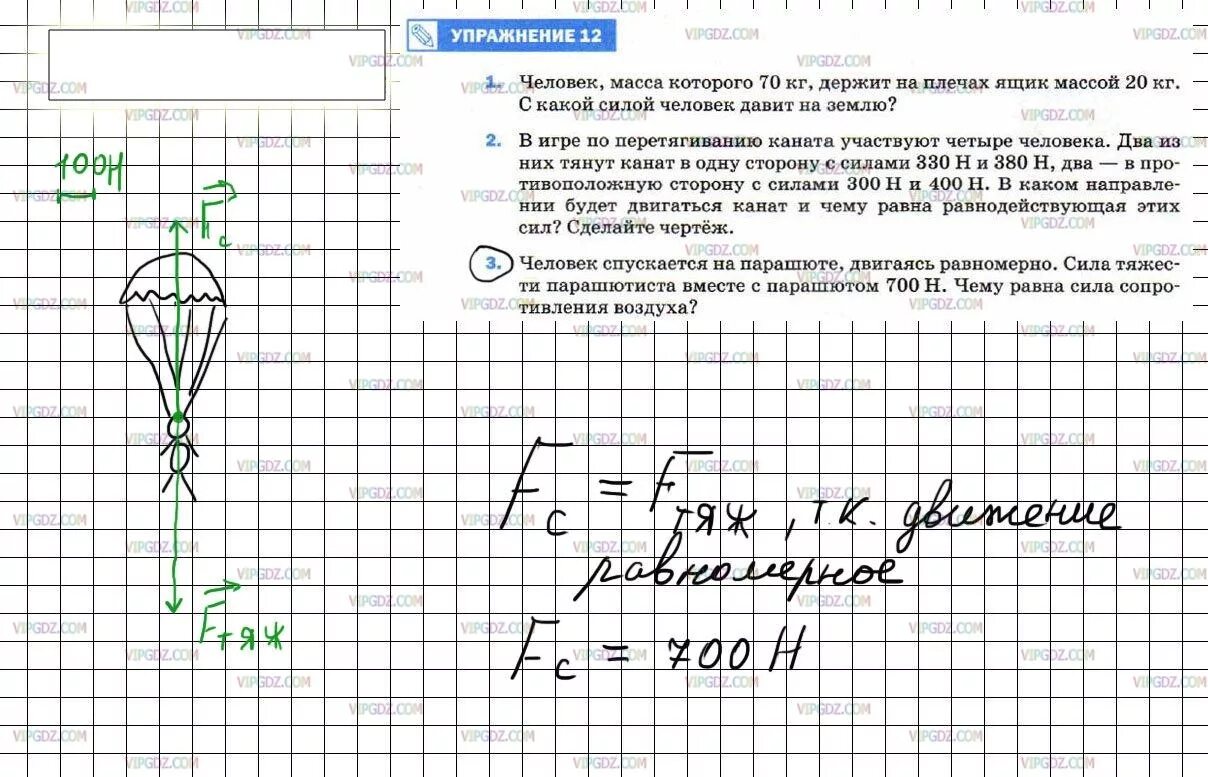 УПРАЖНЕНИЕ 12
1. Человек, масса которого 70 кг, держит на плечах ящик массой 20 кг.
С какой силой человек давит на землю?
2. В игре по перетягиванию каната участвуют четыре человека. Два из
них тянут канат в одну сторону с силами 330 Н и 380 Н, два — в про-
тивоположную сторону с силами 300 Н и 400 Н. В каком направле-
нии будет двигаться канат и чему равна равнодействующая этих
сил? Сделайте чертёж.
3. Человек спускается на парашюте, двигаясь равномерно. Сила тяжес-
ти парашютиста вместе с парашютом 700 Н. Чему равна сила сопро-
тивления воздуха?
100Н
Fс
Fтяж
Fс = Fтяж, т.к. движение
равномерное
Fс = 700 Н
VIPGDZ.COM